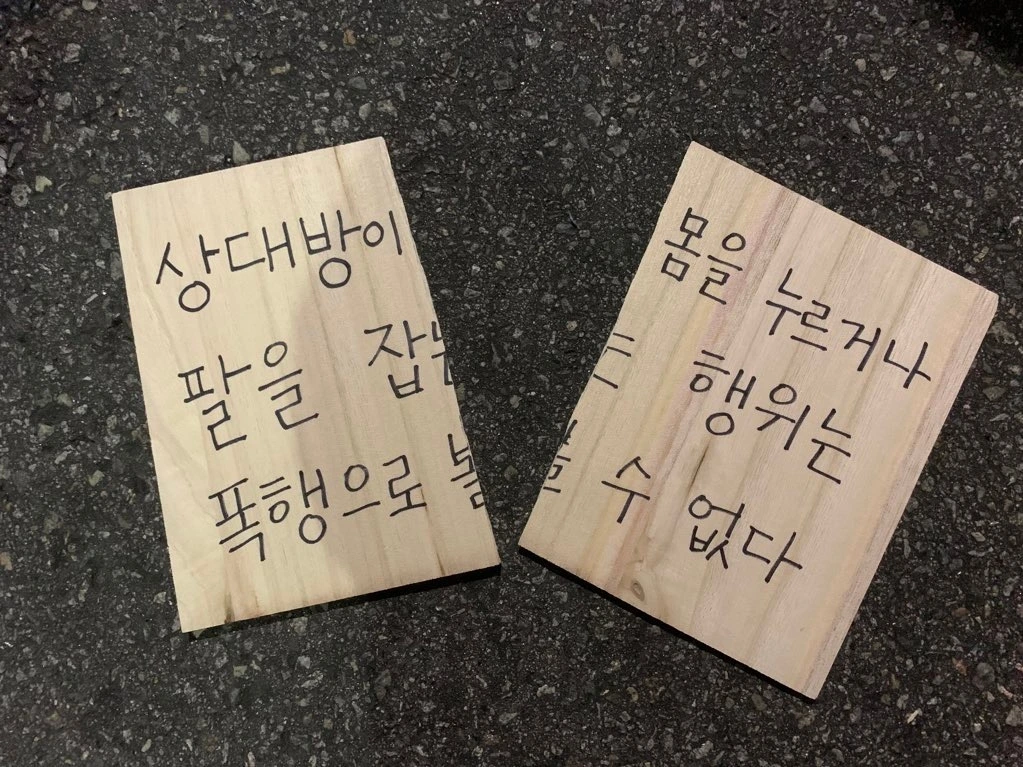 상대방이 몸을 누르거나
팔을 잡는 행위는
폭행으로 볼 수 없다